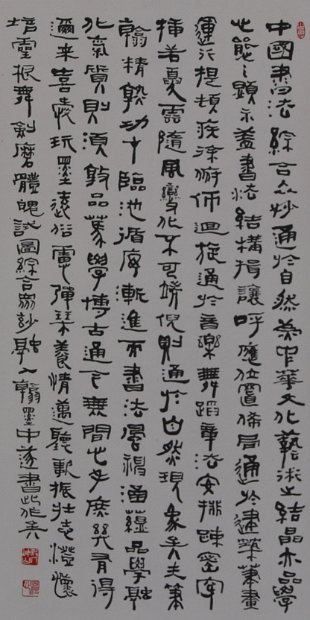 中國書法綜合众妙通於自然為中華文化藝術之結晶亦品學
態之顯示蓋書法結構揖讓呼應位置佈局通於建築筆畫
運行提頓疾徐俯仰迴旋通於音樂舞蹈章法安排疎密穿
插若夏雲隨風變化不可端倪則通於自然現象矣夫筆
翰精熟功臨池循序漸進而書法風格涵蘊品學融
化氣質則須敦品篤學博古通今無間也乎庶幾有得
邇來喜愛玩墨遠俗慮彈琴養情聽歌振壯志懷
培靈根舞劍磨體魄試圖綜合眾妙融入翰墨中遂書此作矣